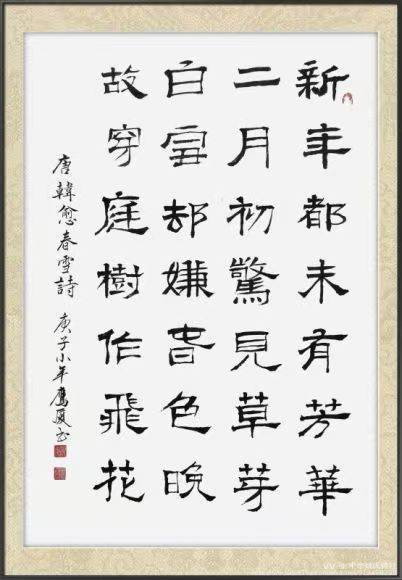 新年都未有芳華
二月初驚見草芽
白雪却嫌春色晚
故穿庭樹作飛花
唐韓愈春雪詩 庚子小年鷹厦书